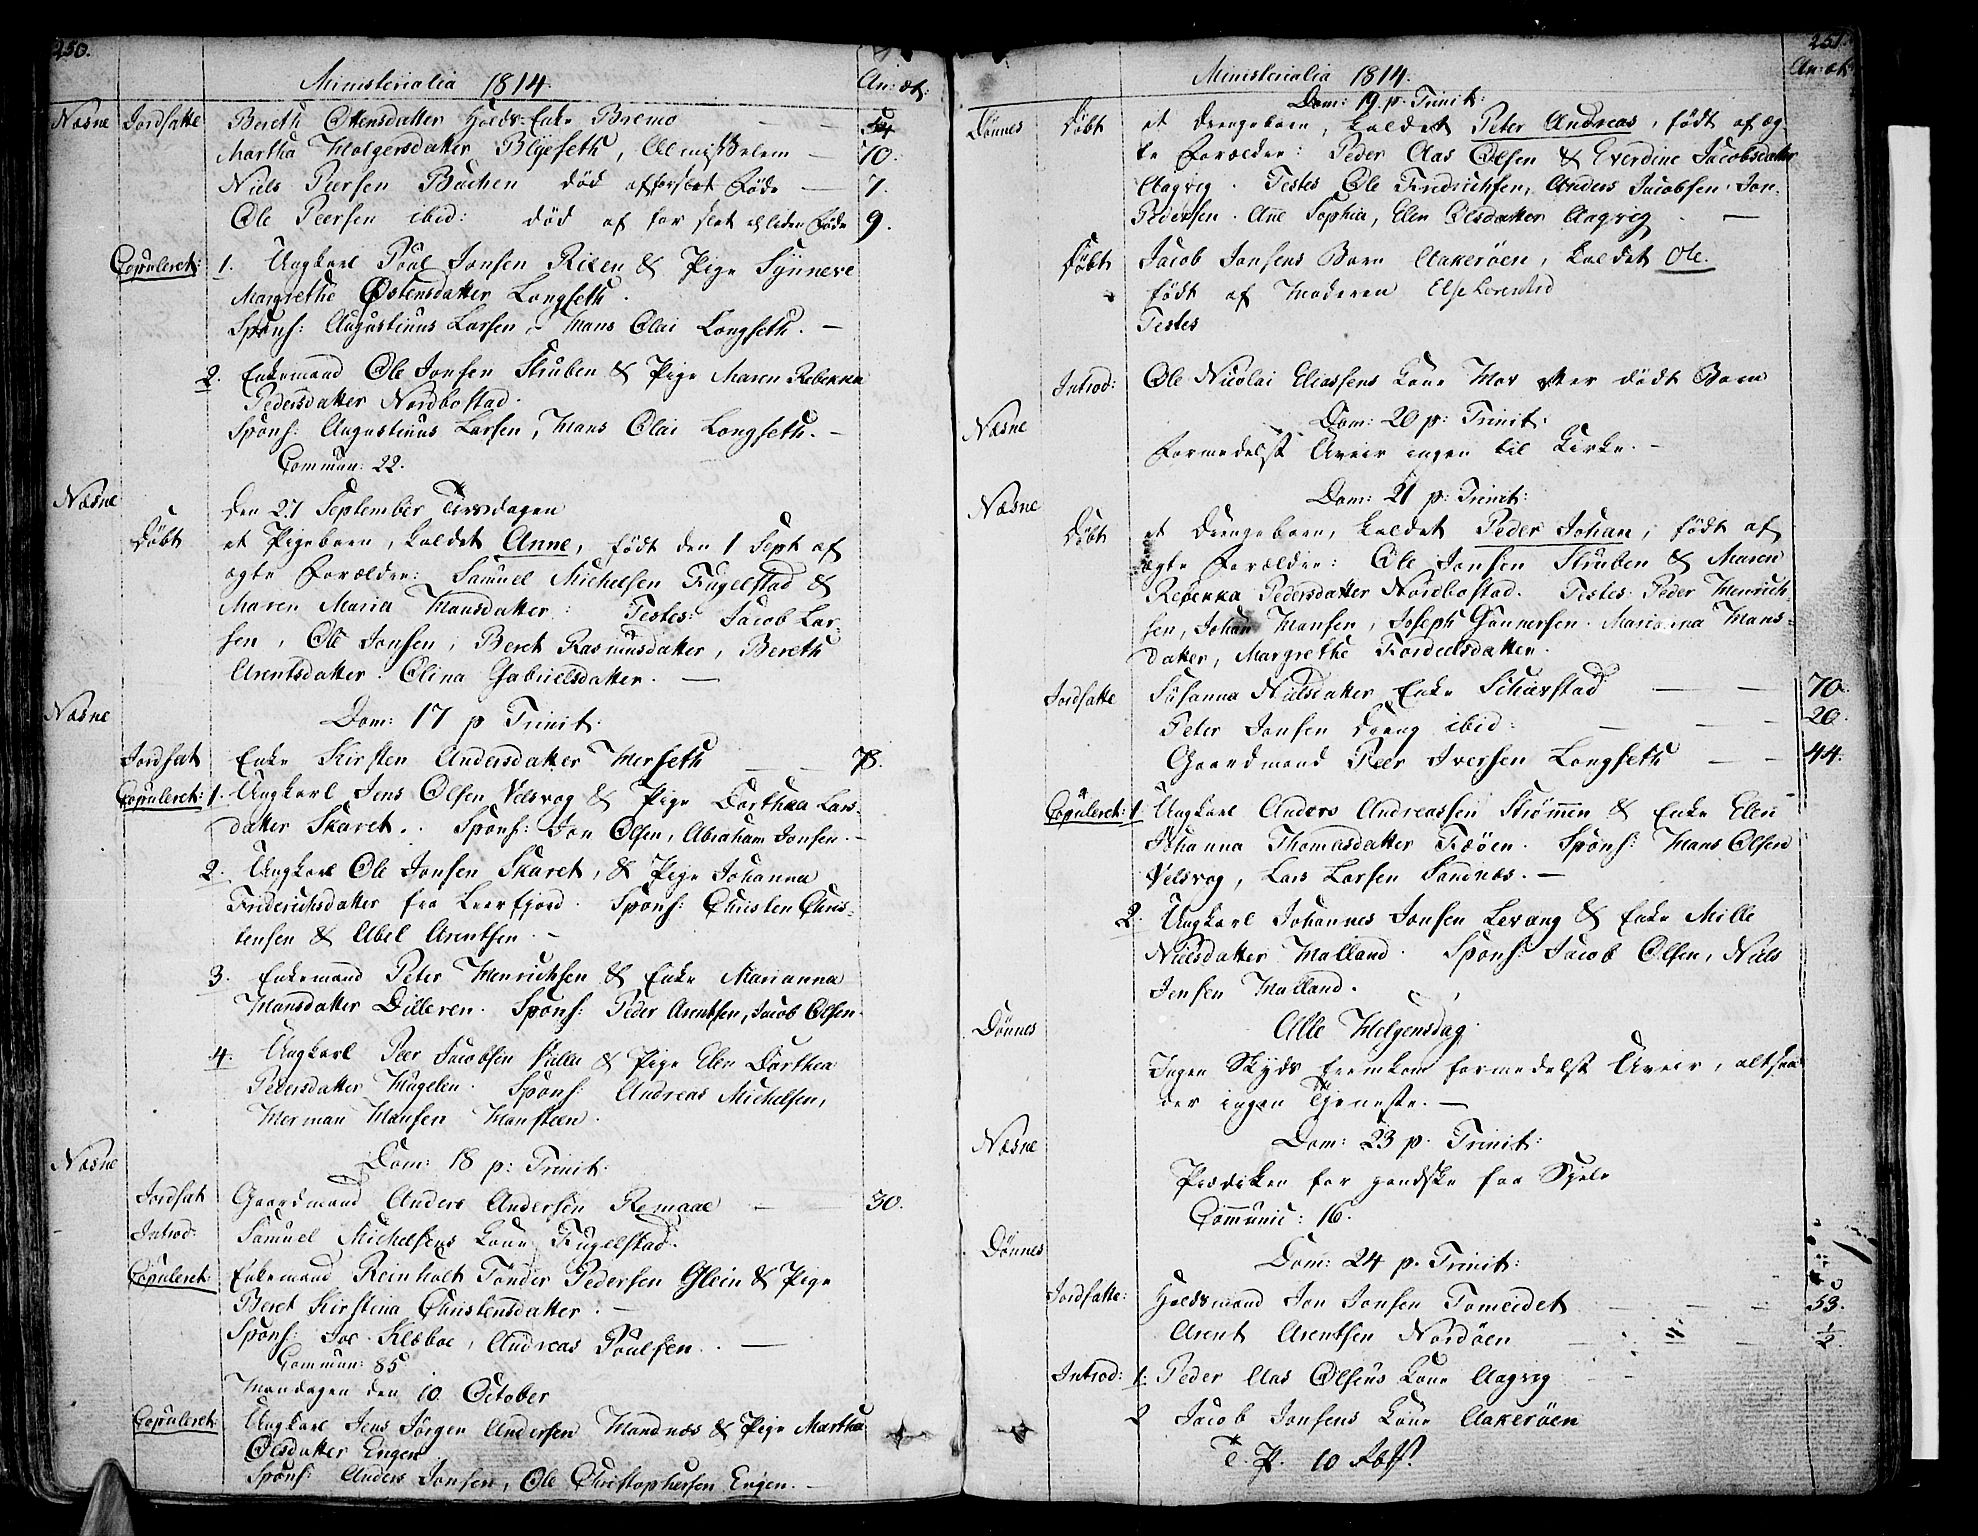 250.
Ministerialia 1814.
An: æt:
Næsne Jordfatte Bereth Ottensdatter Huusm: Enke Bremo — — 54
Martha Holgersdatter Blyeseth, Almisselem — 70.
Niels Peersen Buchen død af forslet Føde — 7.
Ole Peersen ibid: død af for slet & liden Føde 9.
Copuleret: 1. Ungkarl Poul Jonsen Risen & Pige Synneve
Margrethe Østensdatter Longseth.
Spons: Augustinus Larsen, Hans Olai Longseth. —
2. Enkemand Ole Jonsen Struben & Pige Maren Rebekka
Pedersdatter Nordbostad.
Spons: Augustinus Larsen, Hans Olai Longseth. —
Commun: 22.
Næsne den 27 September Tirsdagen
Døbt et Pigebarn, kaldet Anne, født den 1 Sept af
ægte Forældre: Samuel Michelsen Fugelstad &
Maren Maria Hansdatter. Testes: Jacob Lar-
sen, Ole Jonsen, Beret Rasmusdatter, Bereth
Arentsdatter. Olina Gabrielsdatter. —
Næsne Dom: 17 p Trinit:
Jordfat Enke Kirsten Andersdatter Herseth — — 78.
Copuleret: 1. Ungkarl Jens Olsen Velsvog & Pige Dorthea Lars-
datter Skaret. Spons: Jon Olsen, Abraham Jonsen. —
2. Ungkarl Ole Jonsen Skaret, & Pige Johanna
Friderichsdatter fra Leerfjord. Spons: Christen Chris-
tensen & Abel Arentsen. —
3. Enkemand Peter Henrichsen & Enke Marianna
Hansdatter Dilleren. Spons: Peder Arentsen, Jacob Olsen.
4. Ungkarl Peer Jacobsen & Pige Elen Dorthea
Petersdatter Hugelen. Spons: Andreas Michelsen,
Herman Hansen Hansteen.
Næsne Dom: 18 p: Trinit:
Jordfat Gaardmand Anders Andersen Remaae — — 30.
Introd: Samuel Michelsens Kone Fugelstad.
Copuleret: Enkemand Reinholt Tønder Pedersen Glein & Pige
Beret Kirstina Christensdatter. —
Spons: Joe Klæboe, Andreas Poulsen. —
Commun: 85
Mandagen den 10 October
Copuleret: Ungkarl Jens Jørgen Andersen Handnæs & Pige Martha
Olsdatter Engen
Spons: Anders Jonsen, Ole Christophersen Engen. —
251.
Ministerialia 1814.
An: æt:
Dom: 19. p. Trinit:
Dønnes Døbt et Drengebarn, kaldet Peter Andreas, født af æg-
te Forældre: Peder Aas Olsen & Everdine Jacobsdatter
Aagvig. Testes Ole Fridrichsen, Anders Jacobsen, Jon
Pedersen. Ane Sophia, Elen Olsdatter Aagvig. —
Døbt Jacob Jonsens Barn Aakerøen, kaldet Ole.
født af Moderen Else
Testes
Introd: Ole Nicolai Eliassens Kone Hov efter dødt Barn
Næsne Dom: 20 p: Trinit:
Formedelst Uveir ingen til Kirke. —
Næsne Dom: 21 p: Trinit:
Døbt et Drengebarn, kaldet Peder Johan, født af
ægte Forældre: Ole Jonsen Struben & Maren
Rebekka Pedersdatter Nordbostad. Testes: Peder Henrich
sen, Johan Hansen, Joseph Gunnersen. Marianna Hans-
datter, Margrethe Fordeelsdatter.
Jordfatte Susanna Nielsdatter Enke Schiærstad — — 70.
Peter Jonsen Dreng ibid: — — 20.
Gaardmand Peer Iversen Longseth — — 44.
Copuleret: 1 Ungkarl Anders Andreassen Strømmen & Enke Elen
Johanna Thomasdatter Træen. Spons: Hans Olsen
Velsvog, Lars Larsen Sandnæs. —
2. Ungkarl Johannes Jonsen Levang & Enke Mille
Nielsdatter Halland. Spons: Jacob Olsen, Niels
Jensen Halland.
Dønnes Alle Helgensdag.
Ingen Skyds fremkom formedelst Uveir, altsaa
der ingen Tjeneste. —
Næsne Dom: 23 p. Trinit:
Prædiken for gandske faa Sjele
Communic: 16.
Dønnes Dom: 24 p. Trinit:
Jordfatte: Huusmand Jon Jonsen Tomeidet — — 53.
Arent Arentsen Nordøen — — ½.
Introd: 1. Peder Aas Olsens Kone Aagvig
2 Jacob Jonsens Kone Aakerøen
T. P. 10 Rbs.